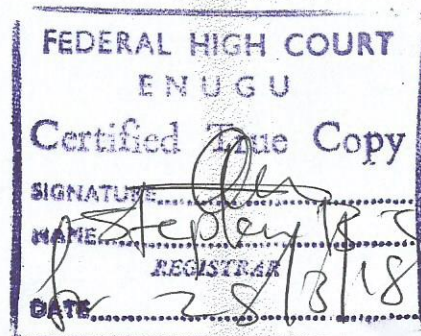 FEDERAL HIGH COURT
ENUGU
Certified True Copy
SIGNATURE
NAME Stephen B
REGISTRAR
DATE 28/3/18